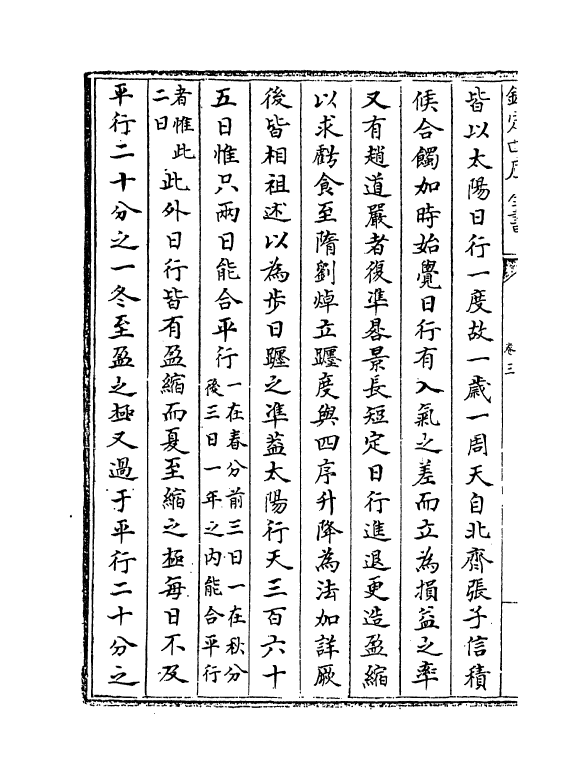 皆以太陽日行一度故一歲一周天自北齊張子信積
候合蝕加時始覺日行有入氣之差而立為損益之率
又有趙道嚴者復準晷景長短定日行進退更造盈縮
以求虧食至隋劉焯立躔度與四序升降為法加詳厥
後皆相祖述以為步日躔之準葢太陽行天三百六十
五日惟只兩日能合平行一在春分前三日一在秋分後三日一年之內能合平行
者惟此二日此外日行皆有盈縮而夏至縮之極每日不及
平行二十分之一冬至盈之極又過于平行二十分之
卷三